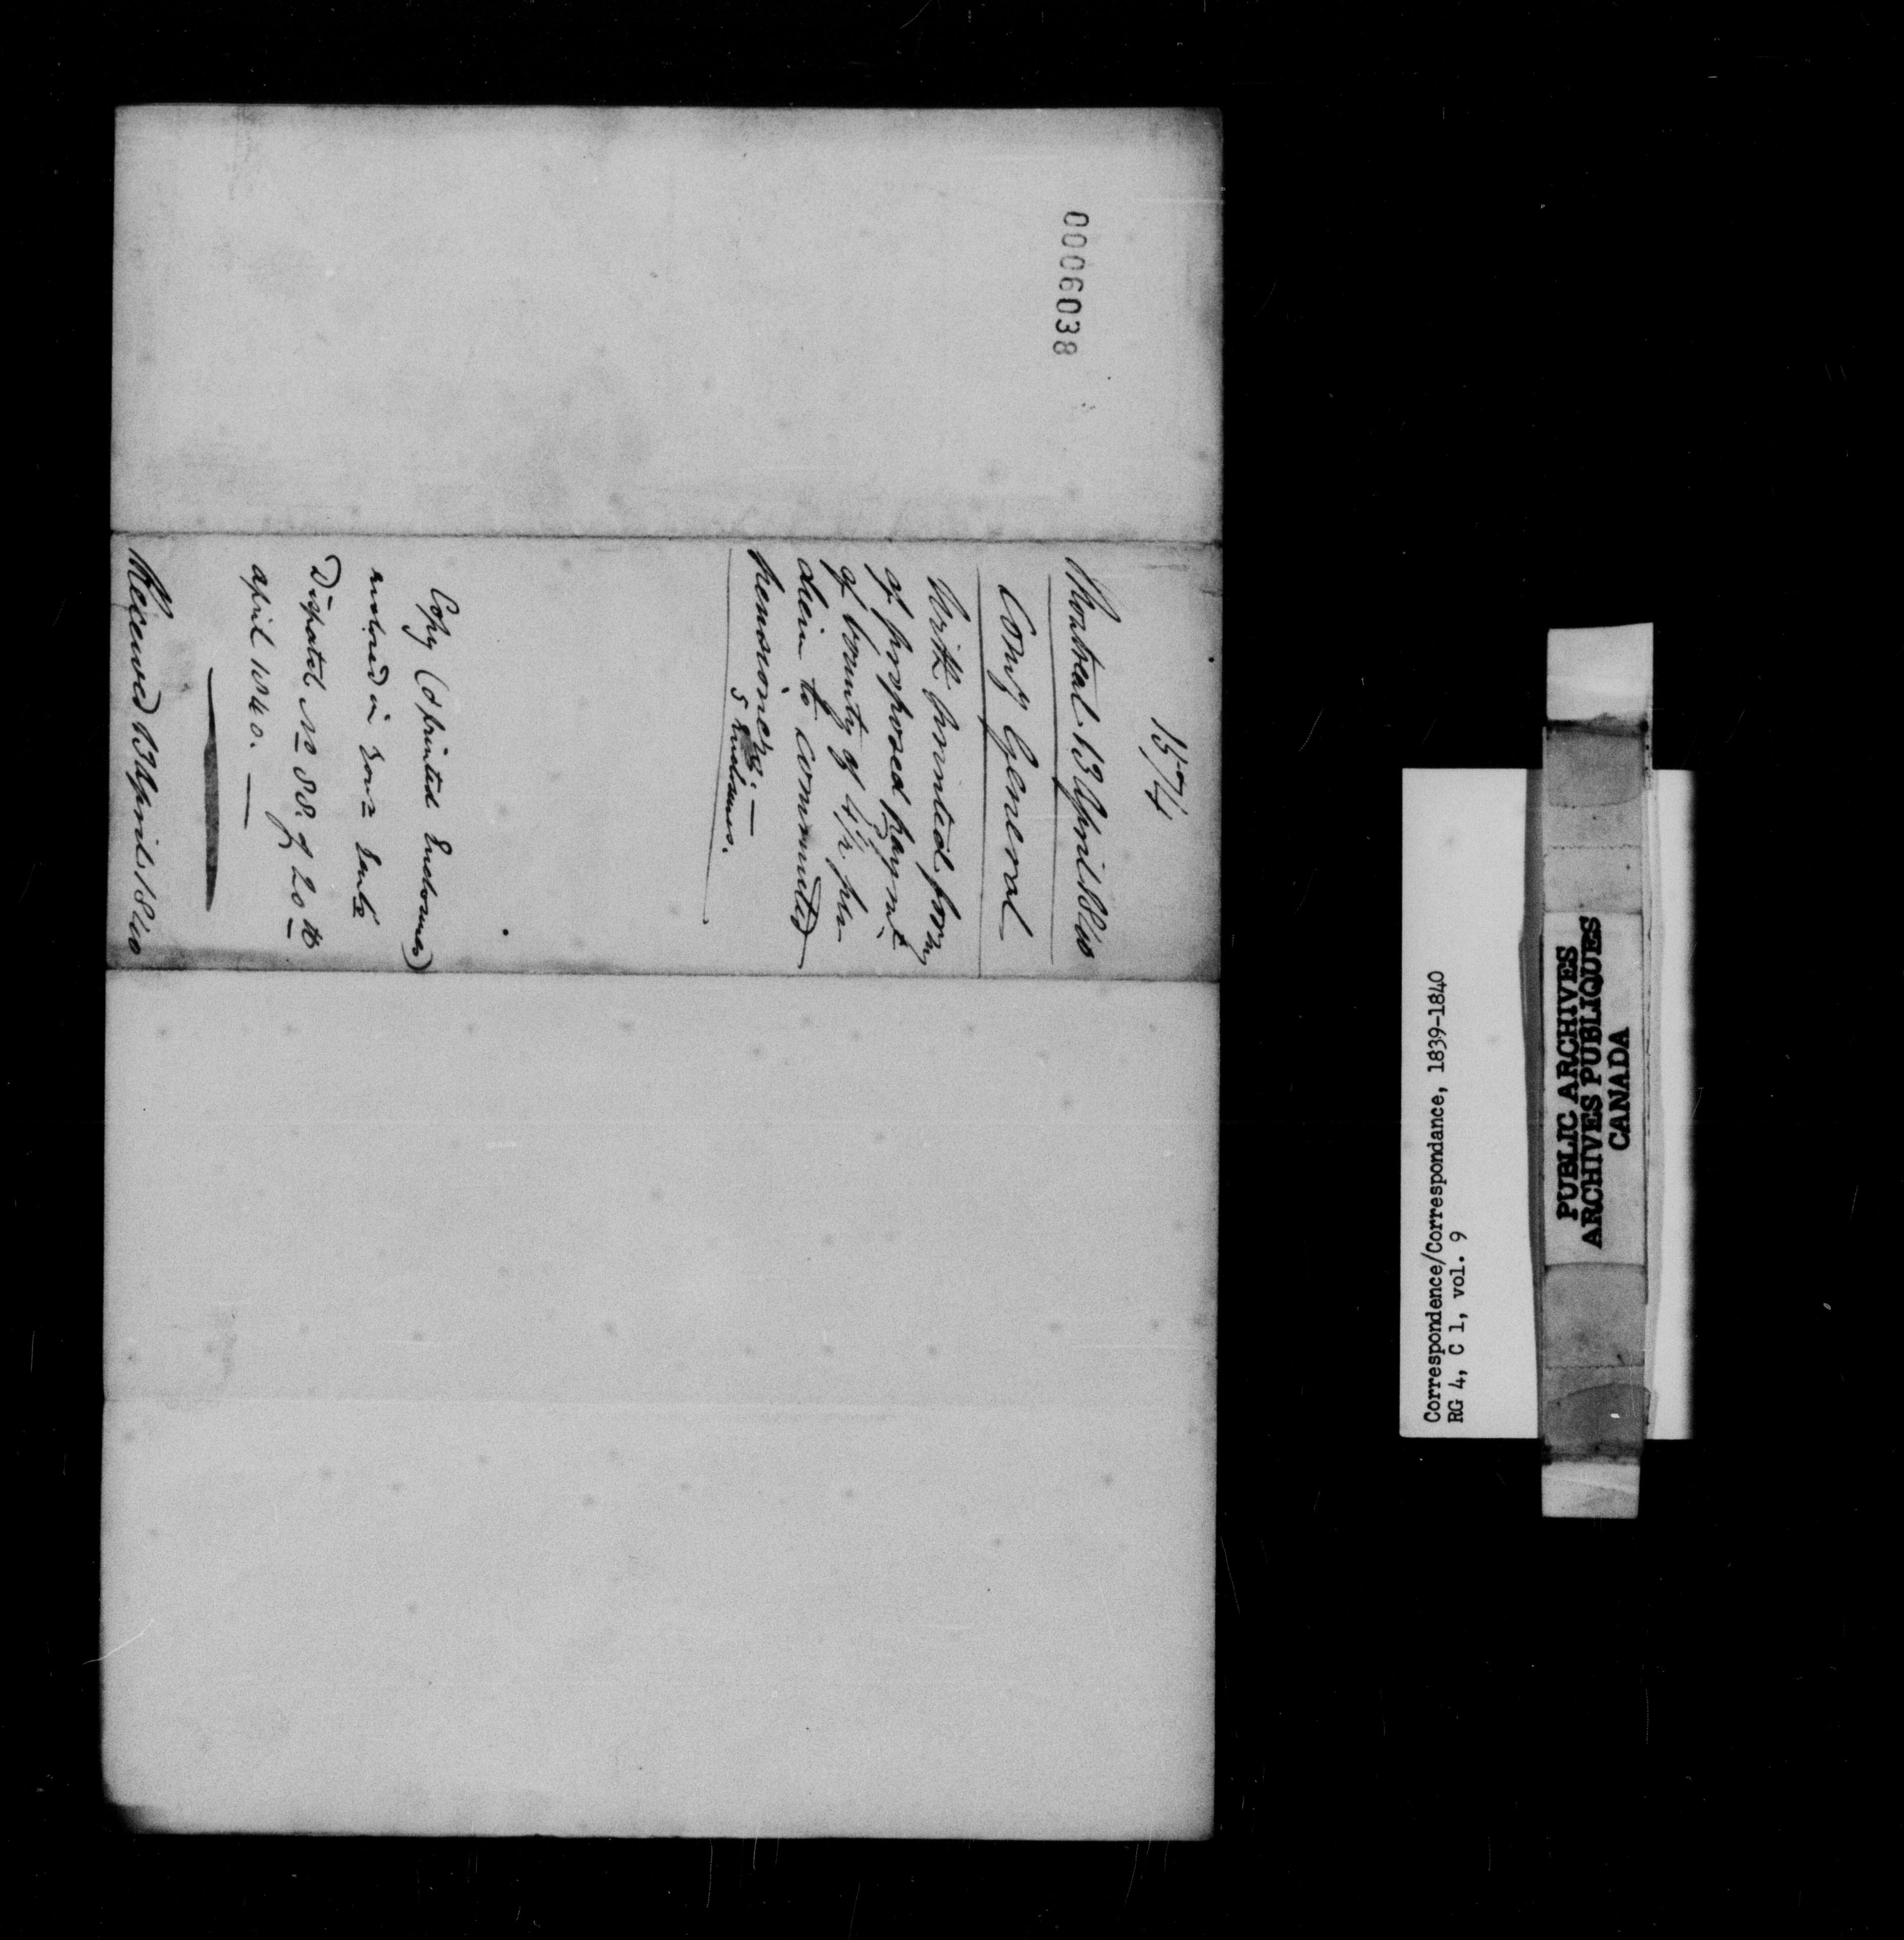 0006038
1574
Montreal 13 April 1840
Comy General
With printed form
of proposed paymt
of bounty of 4/2 per
diem to commuted
pensioners:—
5 Enclosures.
Copy (& printed Enclosures)
enclosed in
Dispatch No 88. of 20th
april 1840. —
Received 13 April 1840
Correspondence/Correspondance, 1839-1840
RG 4, C 1, vol. 9
PUBLIC ARCHIVES
ARCHIVES PUBLIQUES
CANADA